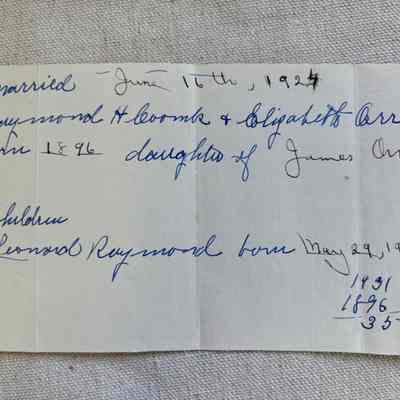 married June 16th, 1924
aymond H Coombs & Elizabeth Orr
in 1896 daughter of James Orr
hildren
Leonard Raymond born May 29, 19
1931
1896
35